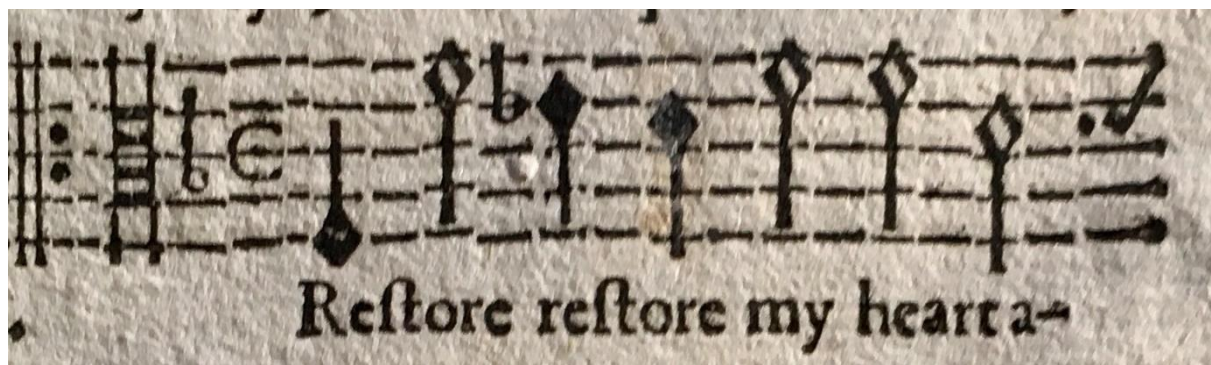 Reſtore reſtore my heart a-